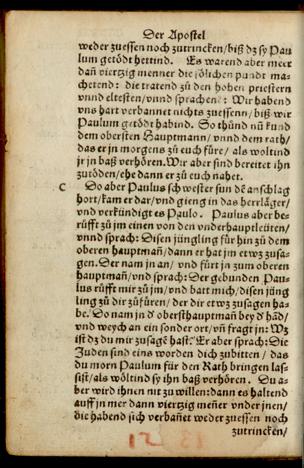 Der Apostel
weder zuessen noch zutrincken/ biß dz sy Pau
lum getödt hettind. Es warend aber meer
dañ viertzig menner die sölichen pundt ma-
chetend: die tratend zů den hohen priestern
vnnd eltesten/ vnnd sprachend: Wir habend
vns hart verbannet nichts zuessen/ biß wir
Paulum getödt habind. So thůnd nů kund
dem obersten Hauptmann/ vnnd dem rath/
das er jn morgens zů euch füre/ als woltind
jr jn baß verhören. Wir aber sind bereitet jhn
zutöden/ ehe dann er zů euch nahet.
C Do aber Paulus schwester sun dē anschlag
hort/ kam er dar/ vnd gieng in das herrläger/
vnd verkündigt es Paulo. Paulus aber be-
růfft zů jm einen von den vnderhauptleüten/
vnnd sprach: Disen jüngling für hin zů dem
oberen hauptmañ/ dann er hat jm etwz zusa-
gen. Der nam jn an/ vnd fürt jn zum oberen
hauptmañ/ vnd sprach: Der gebunden Pau-
lus růfft mir zů jm/ vnd batt mich/ disen jüng
ling zů dir zůfüren/ der dir etwz zusagen ha-
be. Do nam jn dᷣ obersthauptmañ bey dᷣ hãd/
vnd weych an ein sonder ort/ vñ fragt jn: Wz
ist dz du mir zusagē hast? Er aber sprach: Die
Juden sind eins worden dich zubitten/ das
du morn Paulum für den Rath bringen las-
sist/ als wöltind sy jhn baß verhören. Du a-
ber wird ihnen nit zu willen: dann es haltend
auff jn mer dann viertzig meñer vnder jnen/
die habend sich verbañet weder zuessen noch
zutrincken/